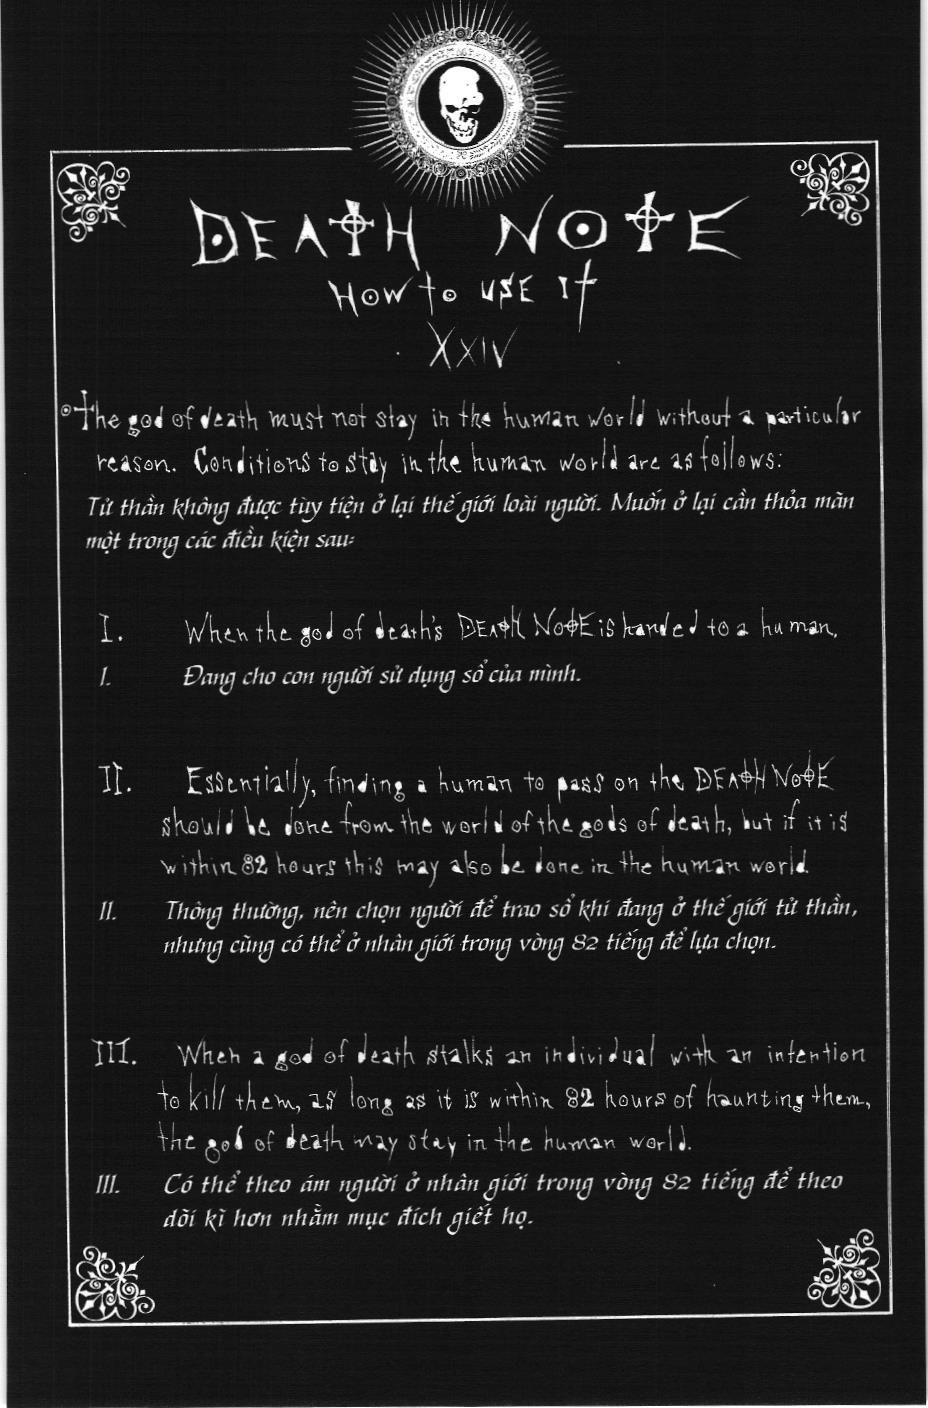 DEATH NOTE
HOW TO USE IT
XXIV
The god of death must not stay in the human world without a particular
reason. Conditions to stay in the human world are as follows:
Tử thần không được tùy tiện ở lại thế giới loài người. Muốn ở lại cần thỏa mãn
một trong các điều kiện sau:
I. When the god of death's DEATH NOTE is handed to a human.
I. Đang cho con người sử dụng sổ của mình.
II. Essentially, finding a human to pass on the DEATH NOTE
should be done from the world of the gods of death, but if it is
within 82 hours this may also be done in the human world.
II. Thông thường, nên chọn người để trao sổ khi đang ở thế giới tử thần,
nhưng cũng có thể ở nhân giới trong vòng 82 tiếng để lựa chọn.
III. When a god of death stalks an individual with an intention
to kill them, as long as it is within 82 hours of haunting them,
the god of death may stay in the human world.
III. Có thể theo ám người ở nhân giới trong vòng 82 tiếng để theo
dõi kĩ hơn nhằm mục đích giết họ.